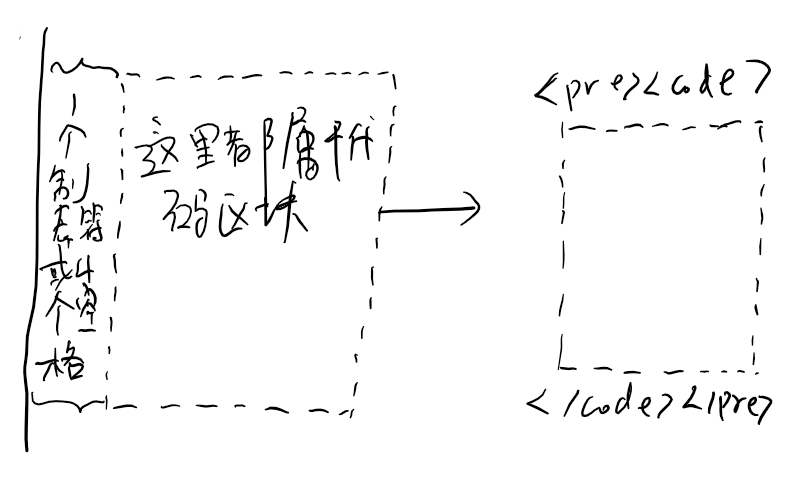 1
个
制
表符
或4
个空
格
这里都属于代
码区块
<pre><code>
</code></pre>